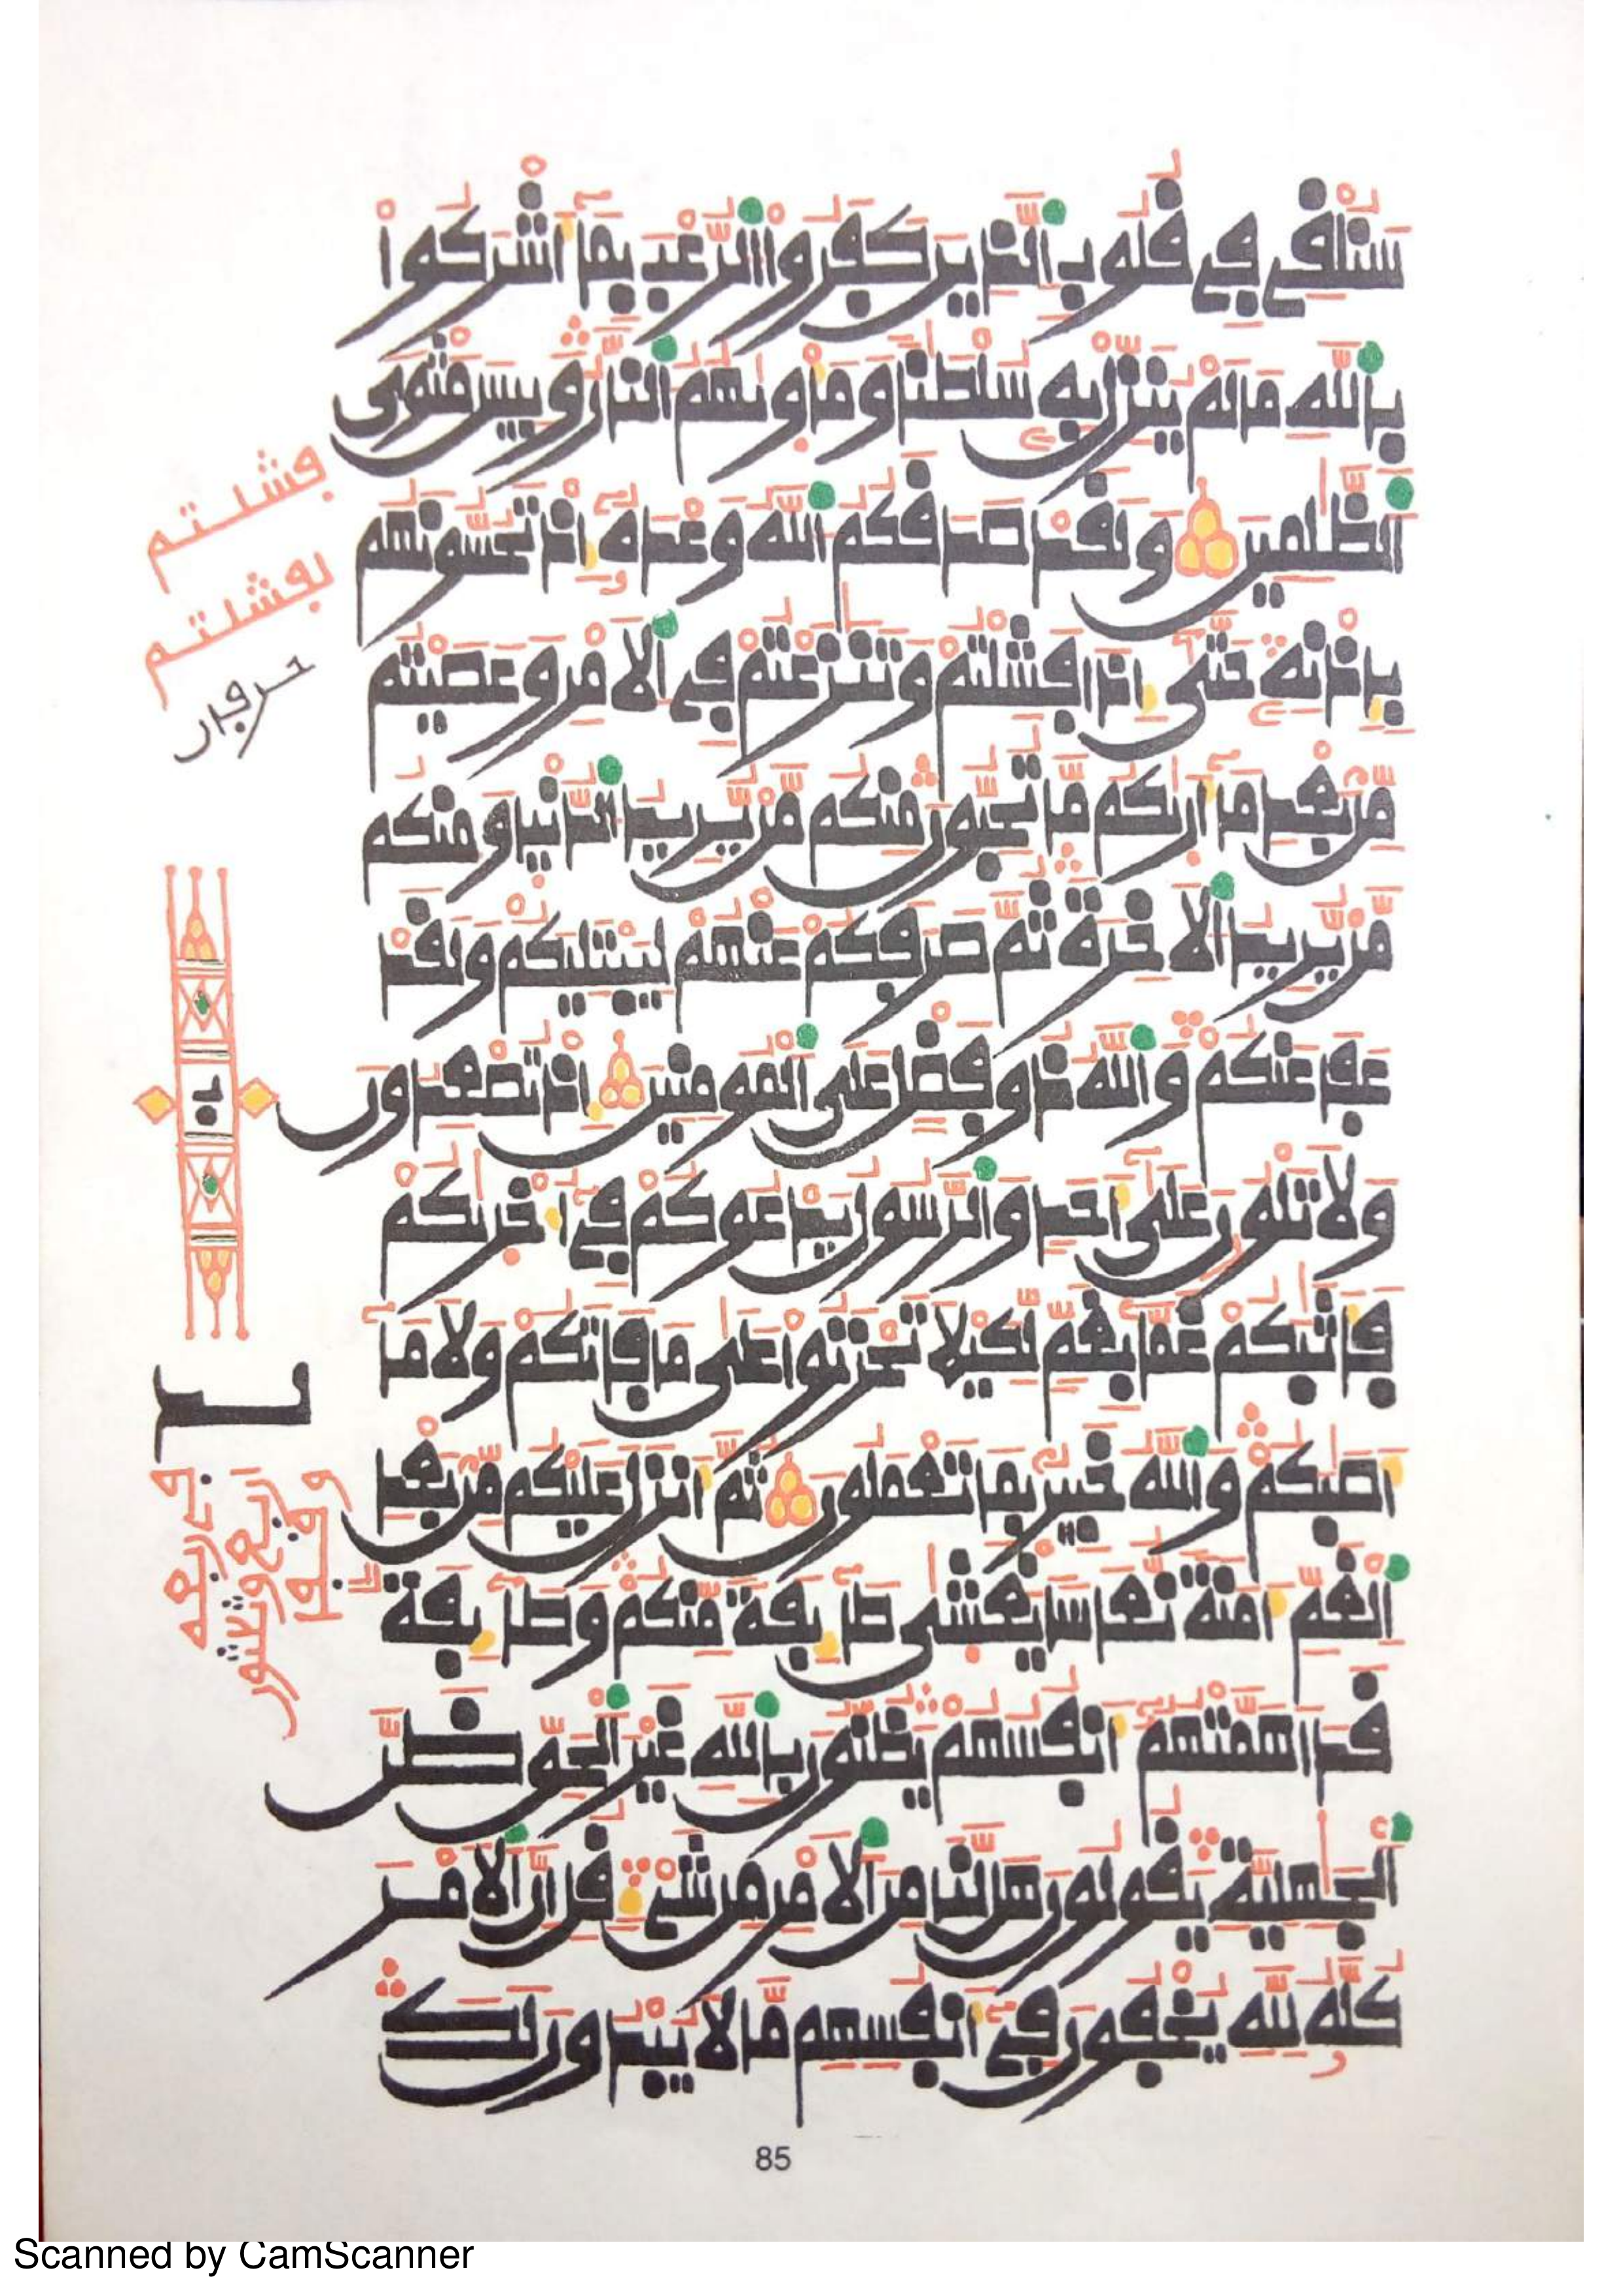 سنلقي في قلوب الذين كفروا الرعب بما أشركوا
بالله ما لم ينزل به سلطنا ومأويهم النار وبيس مثوى
الظلمين ولقد صدقكم الله وعده إذ تحسونهم
بإذنه حتى إذا فشلتم وتنزعتم في الأمر وعصيتم
من بعد ما أريكم ما تحبون منكم من يريد الدنيا ومنكم
من يريد الأخرة ثم صرفكم عنهم ليبتليكم ولقد
عفا عنكم والله ذو فضل على المومنين إذ تصعدون
ولا تلون على أحد والرسول يدعوكم في أخريكم
فأثبكم غما بغم لكيلا تحزنوا على ما فاتكم ولا ما
أصبكم والله خبير بما تعملون ثم أنزل عليكم من بعد
الغم أمنة نعاسا يغشى طايفة منكم وطايفة
قد أهمتهم أنفسهم يظنون بالله غير الحق ظن
الجهلية يقولون هل لنا من الأمر من شيء قل إن الأمر
كله لله يخفون في أنفسهم ما لا يبدون لك
فشلتم
لفشلتم
حرفان
85
Scanned by CamScanner